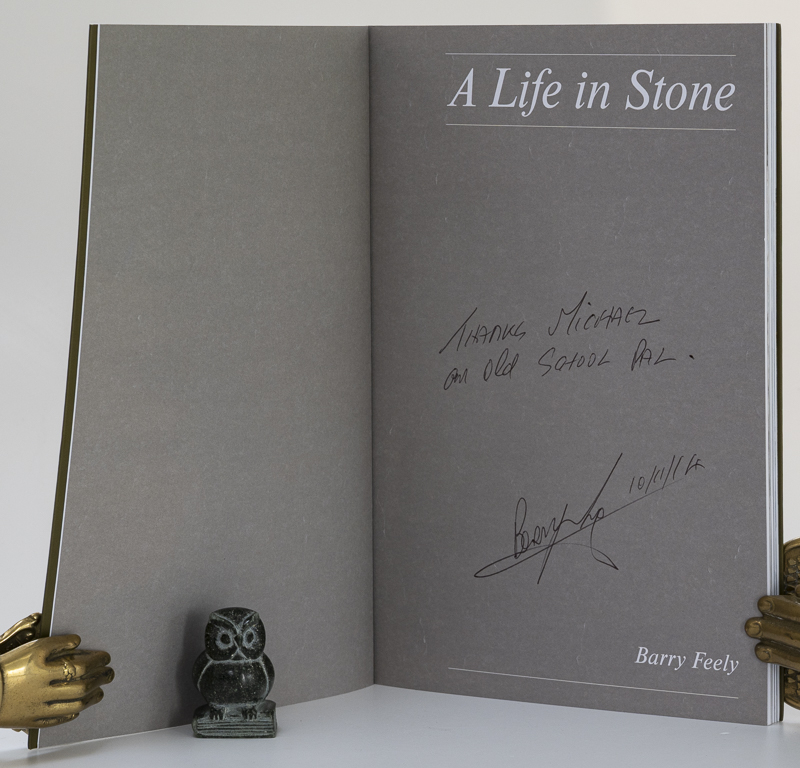 A Life in Stone
THANKS MICHAEL
an Old SCHOOL PAL.
10/11/14
Barry Feely